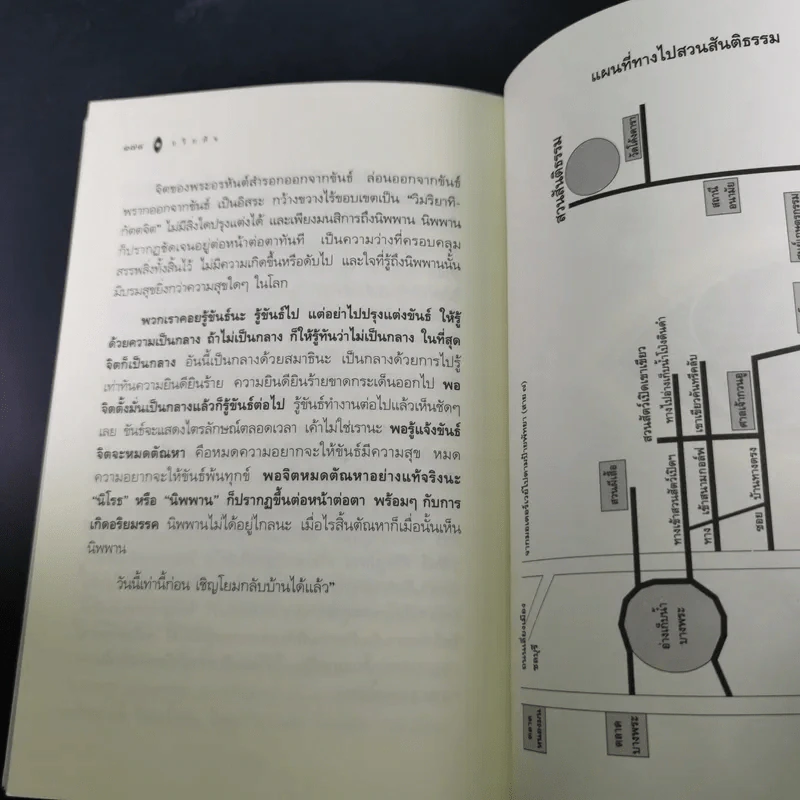 ๑๗๘
จิตของพระอรหันต์สำรอกออกจากขันธ์ ล่อนออกจากขันธ์
พรากออกจากขันธ์ เป็นอิสระ กว้างขวางไร้ขอบเขตเป็น “วิมริยาทิ-
กัตตจิต” ไม่มีสิ่งใดปรุงแต่งได้ และเพียงมนสิการถึงนิพพาน นิพพาน
ก็ปรากฏชัดเจนอยู่ต่อหน้าต่อตาทันที เป็นความว่างที่ครอบคลุม
สรรพสิ่งทั้งสิ้นไว้ ไม่มีความเกิดขึ้นหรือดับไป และใจที่รู้ถึงนิพพานนั้น
มีบรมสุขยิ่งกว่าความสุขใดๆ ในโลก
พวกเราคอยรู้ขันธ์นะ รู้ขันธ์ไป แต่อย่าไปปรุงแต่งขันธ์ ให้รู้
ด้วยความเป็นกลาง ถ้าไม่เป็นกลาง ก็ให้รู้ทันว่าไม่เป็นกลาง ในที่สุด
จิตก็เป็นกลาง อันนี้เป็นกลางด้วยสมาธินะ เป็นกลางด้วยการไปรู้
เท่าทันความยินดียินร้าย ความยินดียินร้ายขาดกระเด็นออกไป พอ
จิตตั้งมั่นเป็นกลางแล้วก็รู้ขันธ์ต่อไป รู้ขันธ์ทำงานต่อไปแล้วเห็นชัดๆ
เลย ขันธ์จะแสดงไตรลักษณ์ตลอดเวลา เค้าไม่ใช่เรานะ พอรู้แจ้งขันธ์
จิตจะหมดตัณหา คือหมดความอยากจะให้ขันธ์มีความสุข หมด
ความอยากจะให้ขันธ์พ้นทุกข์ พอจิตหมดตัณหาอย่างแท้จริงนะ
“นิโรธ” หรือ “นิพพาน” ก็ปรากฏขึ้นต่อหน้าต่อตา พร้อมๆ กับการ
เกิดอริยมรรค นิพพานไม่ได้อยู่ไกลนะ เมื่อไรสิ้นตัณหาก็เมื่อนั้นเห็น
นิพพาน
วันนี้เท่านี้ก่อน เชิญโยมกลับบ้านได้แล้ว”
แผนที่ทางไปสวนสันติธรรม
สวนสันติธรรม
วัดโค้งดารา
สถานี
อนามัย
ศาลเจ้ากวนอู
สวนสัตว์เปิดเขาเขียว
ทางไปอ่างเก็บน้ำโป่งดินดำ
เขาเขียวคันทรีคลับ
สวนผีเสื้อ
ทางเข้าสวนสัตว์เปิดฯ
ทาง เข้าสนามกอล์ฟ
ซอย บ้านทางตรง
จากมอเตอร์เวย์ไปตามป้ายพัทยา (สาย ๗)
อ่างเก็บน้ำ
บางพระ
ถนนเลี่ยงเมือง
ชลบุรี
ตลาด
หนองมน
ตลาด
บางพระ